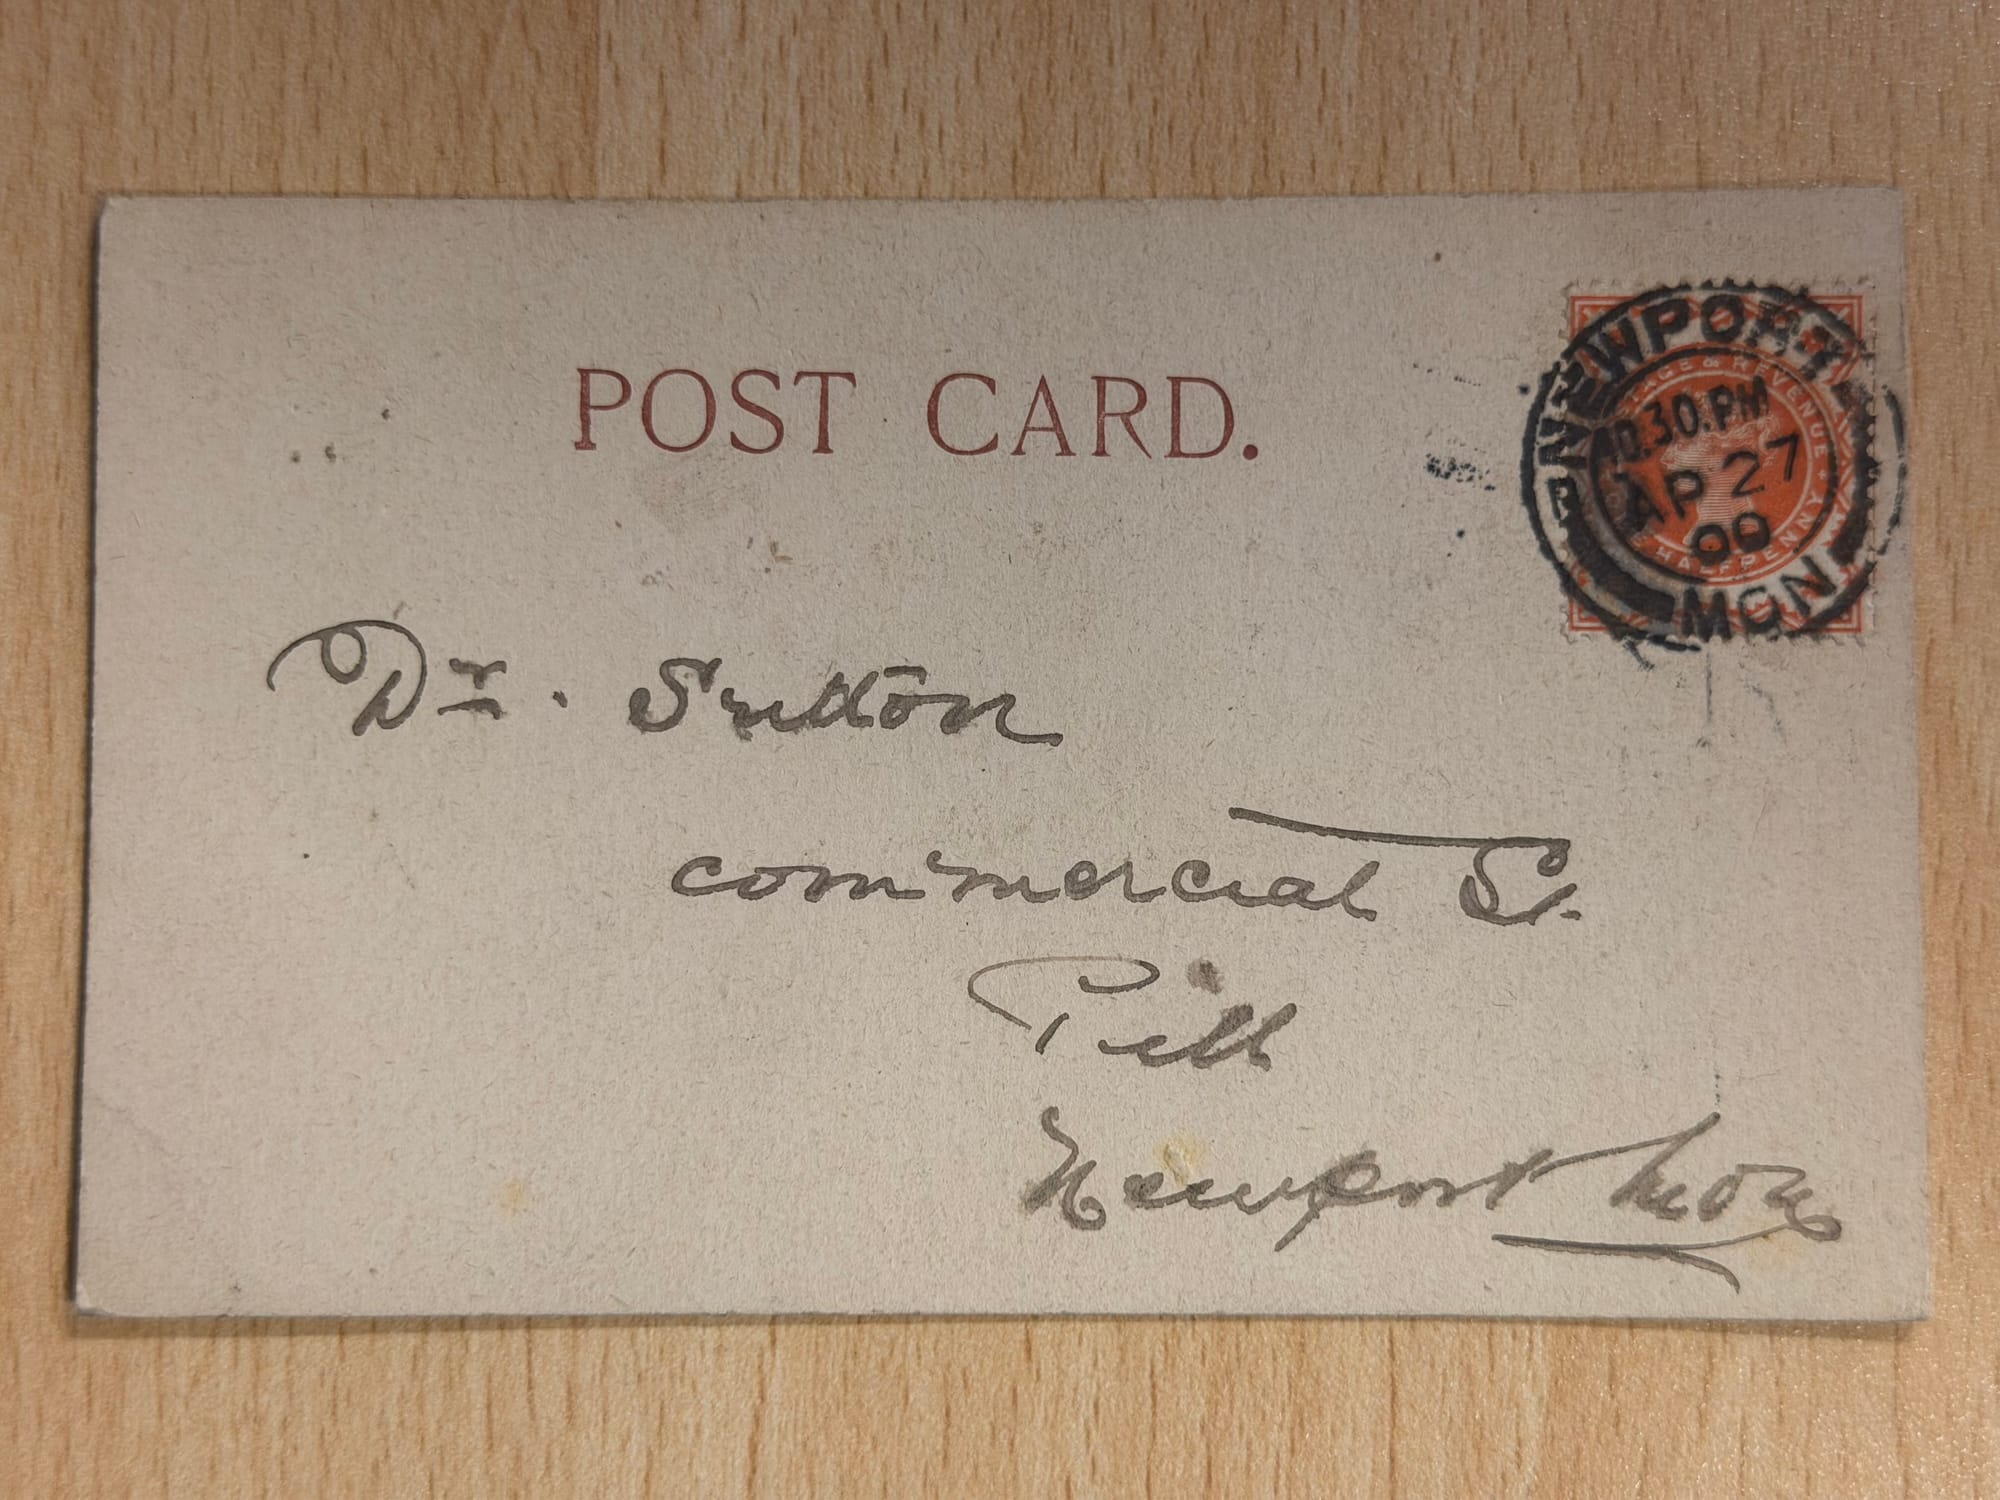 POST CARD.
NEWPORT
10.30.PM
AP 27
00
MON
POSTAGE & REVENUE
HALFPENNY
Dr. Sutton
Commercial St.
Pill
Newport Mon